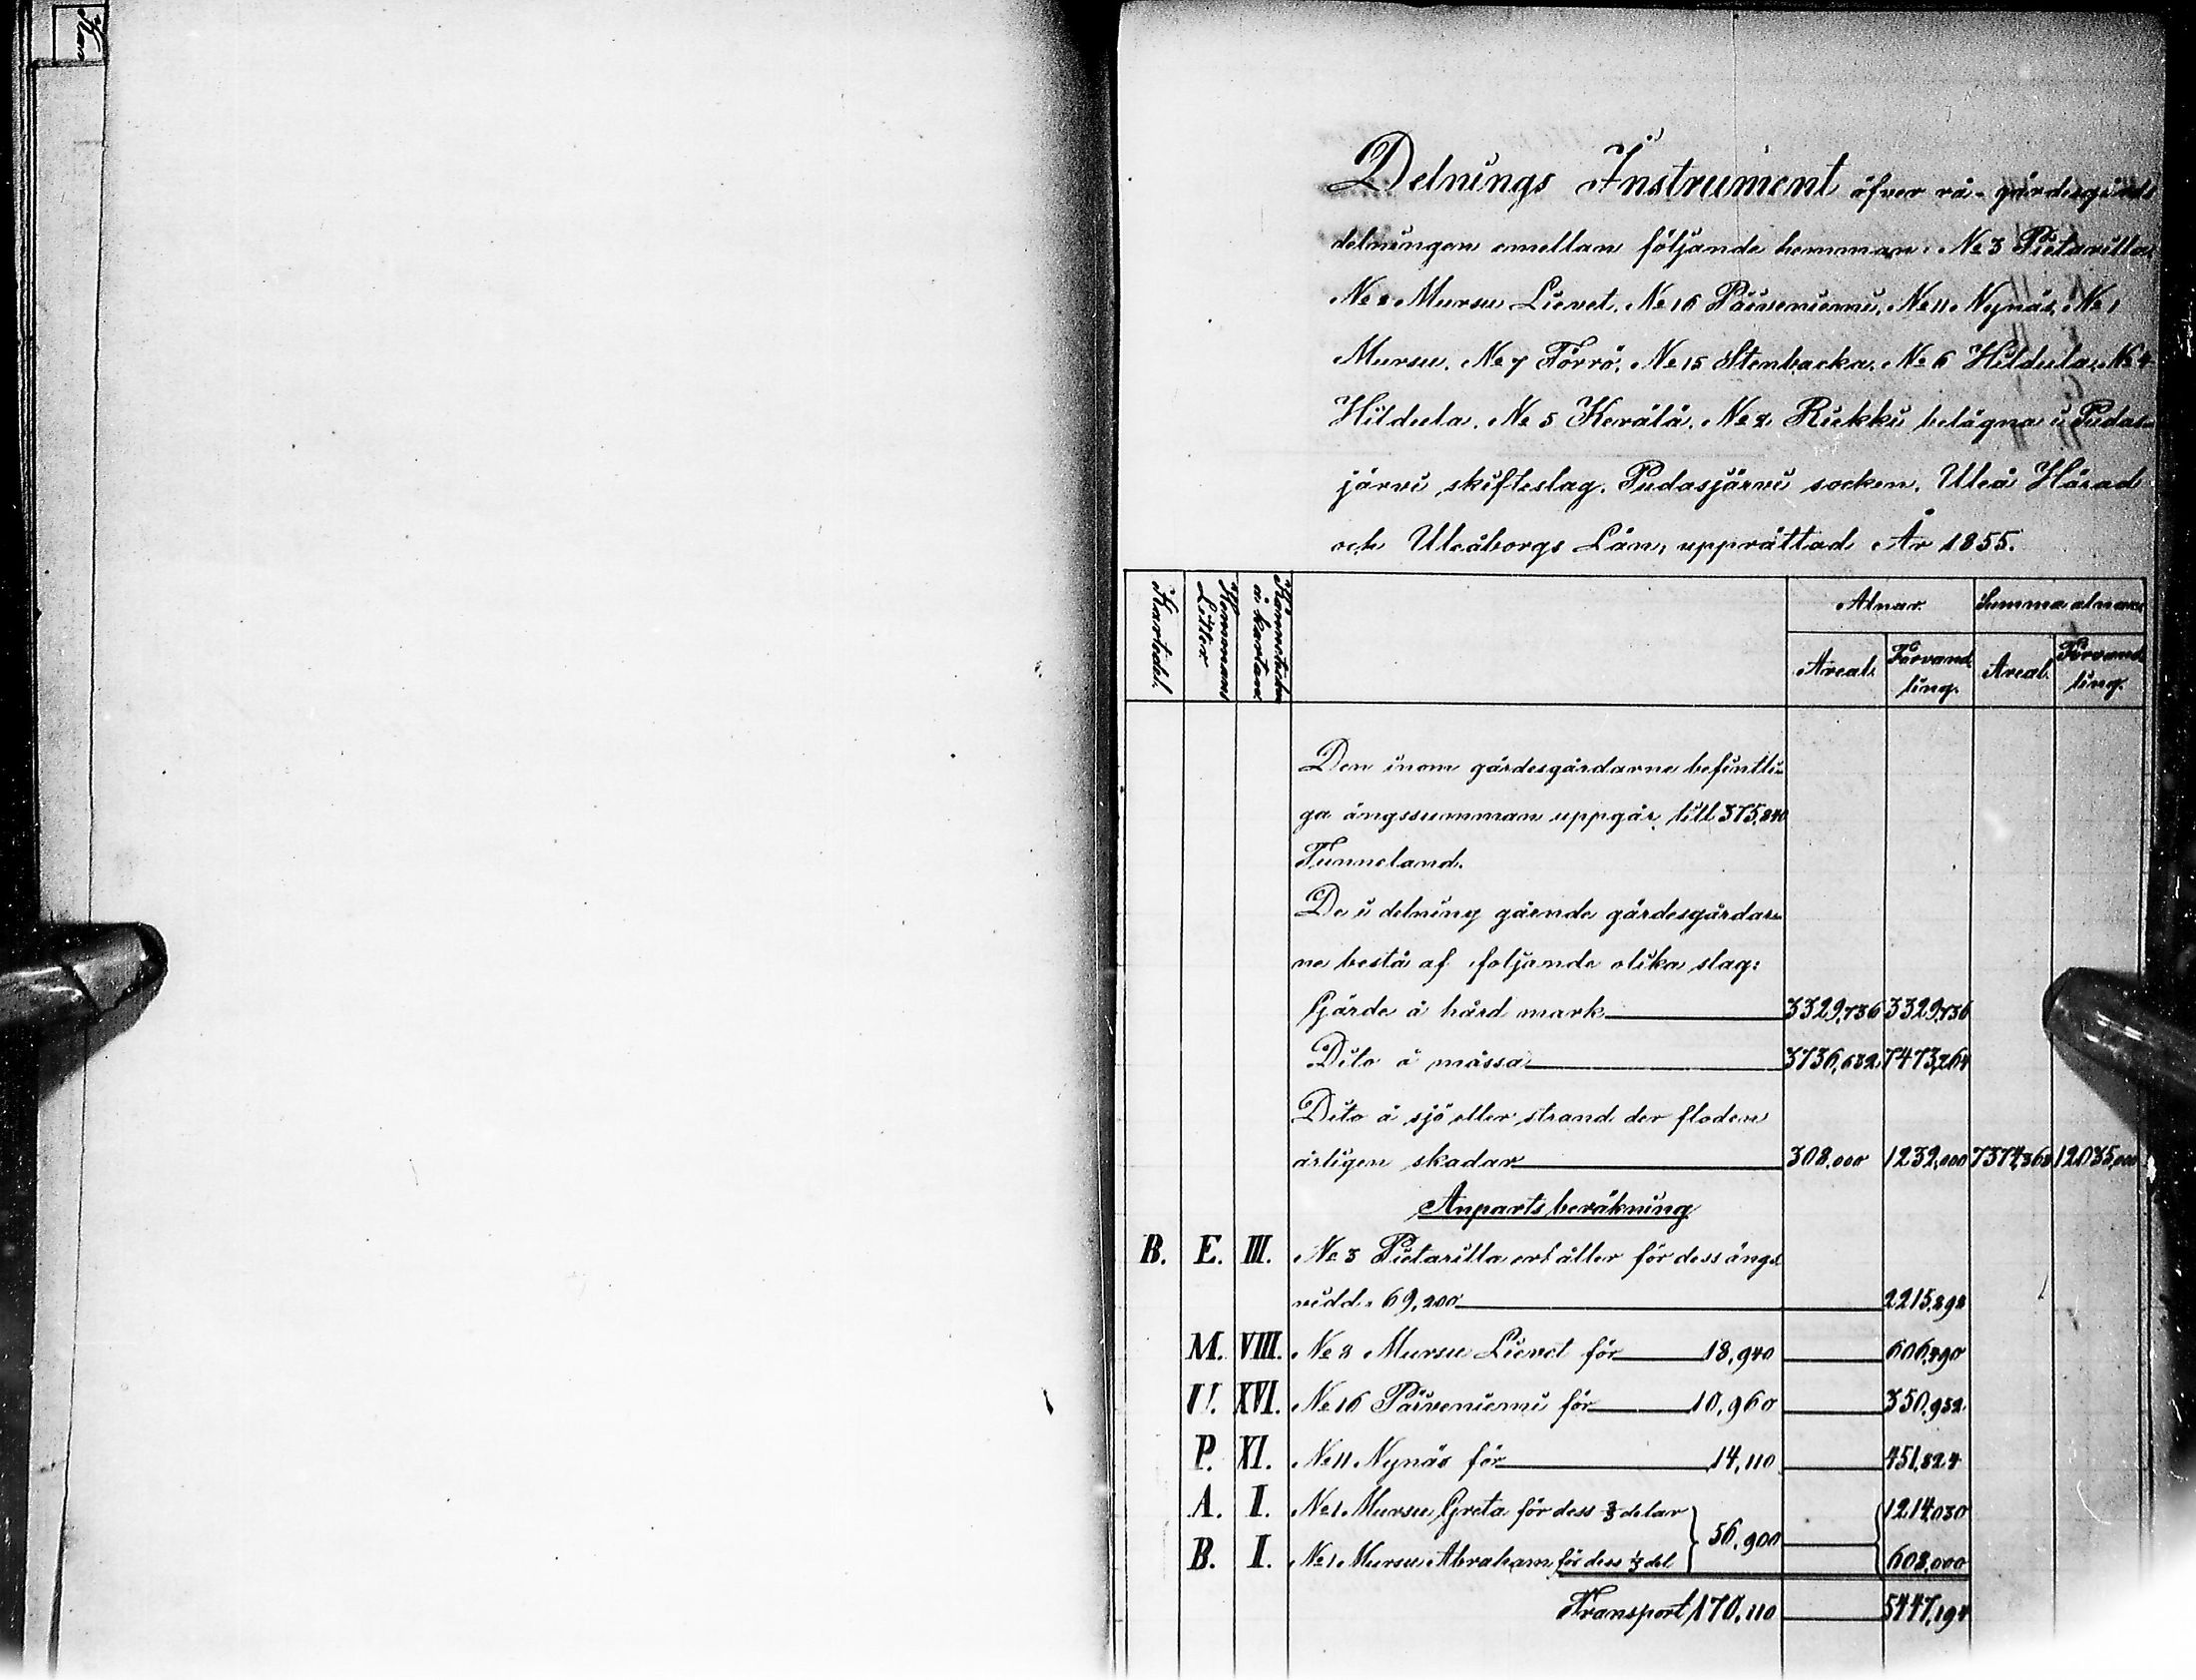 Kar
Delnings Instrument öfver rå-gärdesgårds
delningen emellan följande hemman: No 3 Pietarilla
No 8 Mursu Lievet, No 16 Päiveniemi, No 11 Nynäs, No 1
Mursu, No 7 Törrö, No 15 Stenbacka, No 6 Hildula, No 4
Hildula, No 5 Kerälä, No 2 Riekki belägna i Pudas-
järvi skifteslag, Pudasjärvi socken, Uleå Härad
och Uleåborgs Län, upprättad År 1855.
Kartedel.
Hemmans Litter
No
å kartan
Alnar.
Summa alnar
Areal.
Förvand
ling.
Areal.
Förvand
ling.
Den inom gärdesgårdarne befintli-
ga ängssumman uppgår till 375,840
Tunneland.
De i delning gående gärdesgårdar-
ne bestå af foljande olika slag:
Gärde å hård mark 3329,736 3329,736
Dito å måssa 3736,632 7473,264
Dito å sjö eller strand der floden
årligen skadar 308,000 1232,000 7374,368 12035,000
Anparts beräkning
B. E. III. No 3 Pietarilla erhåller för dess ängs
vidd. 69,200 2215,898
M. VIII. No 8 Mursu Lievet för 18,940 606,490
U. XVI. No 16 Päiveniemi för 10,960 350,952
P. XI. No 11 Nynäs för 14,110 451,824
A. I. No 1 Mursu Greta för dess 2/3 delar 56,900 1214,030
B. I. No 1 Mursu Abraham för dess 1/3 del 608,000
Transport 170,110 5447,194